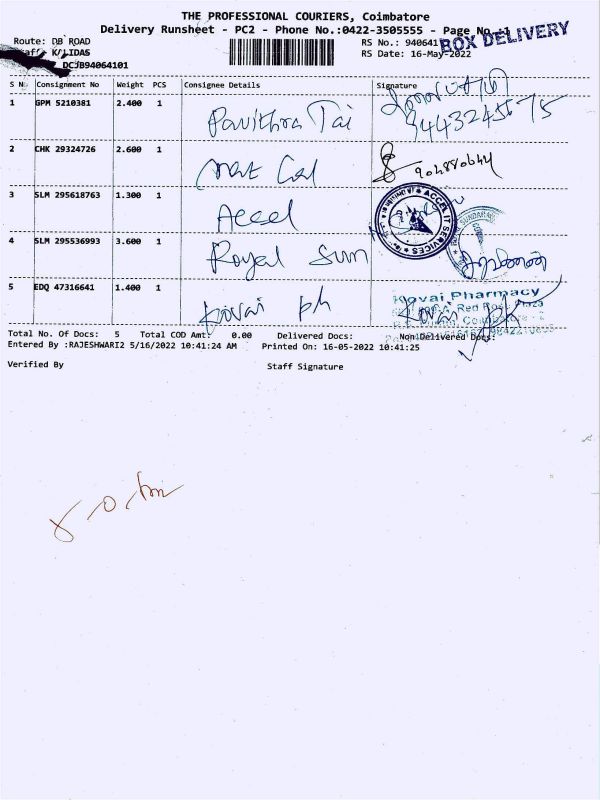 THE PROFESSIONAL COURIERS, Coimbatore
Delivery Runsheet - PC2 - Phone No.:0422-3505555 - Page No.
BOX DELIVERY
Route: DB ROAD
RS No.: 940641
LIDAS
RS Date: 16-May-2022
DCJB94064101
S No Consignment No Weight PCS Consignee Details Signature
1 GPM 5210381 2.400 1 Pavithra Tai
2 CHK 29324726 2.600 1
3 SLM 295618763 1.300 1 Accel
ACCEL IT SERVICES
4 SLM 295536993 3.600 1 Royal Sun
5 EDQ 47316641 1.400 1 Kovai ph
Kovai Pharmacy
Total No. Of Docs: 5 Total COD Amt: 0.00 Delivered Docs: Non Delivered Docs:
Entered By :RAJESHWARI2 5/16/2022 10:41:24 AM Printed On: 16-05-2022 10:41:25
Verified By Staff Signature